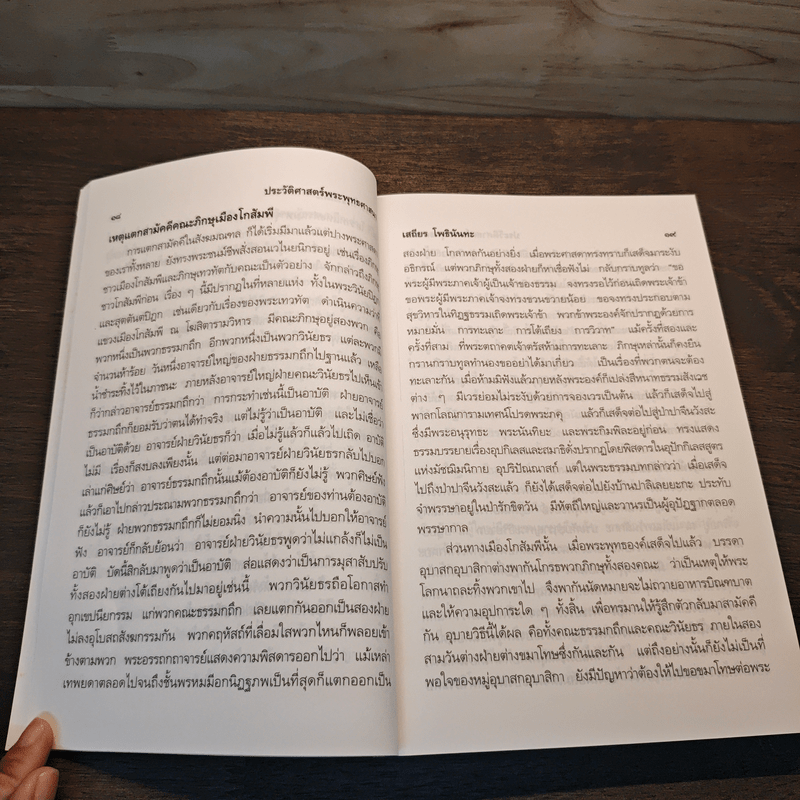 ๓๘ ประวัติศาสตร์พระพุทธศาสนา
เหตุแตกสามัคคีคณะภิกษุเมืองโกสัมพี
การแตกสามัคคีในสังฆมณฑล ก็ได้เริ่มมีมาแล้วแต่ปางพระศาสดา
ของเราทั้งหลาย ยังทรงพระชนม์ชีพสั่งสอนเวไนยนิกรอยู่ เช่นเรื่องภิกษุ
ชาวเมืองโกสัมพีและภิกษุเทวทัตกับคณะเป็นตัวอย่าง จักกล่าวถึงภิกษุ
ชาวโกสัมพีก่อน เรื่อง ๆ นี้มีปรากฏในที่หลายแห่ง ทั้งในพระวินัยปิฎก
และสุตตันตปิฎก เช่นเดียวกับเรื่องของพระเทวทัต ดำเนินความว่า
แขวงเมืองโกสัมพี ณ โฆสิตารามวิหาร มีคณะภิกษุอยู่สองพวก คือ
พวกหนึ่งเป็นพวกธรรมกถึก อีกพวกหนึ่งเป็นพวกวินัยธร แต่ละพวกมี
จำนวนห้าร้อย วันหนึ่งอาจารย์ใหญ่ของฝ่ายธรรมกถึกไปฐานแล้ว เหลือ
น้ำชำระทิ้งไว้ในภาชนะ ภายหลังอาจารย์ใหญ่ฝ่ายคณะวินัยธรไปเห็นเข้า
ก็ว่ากล่าวอาจารย์ธรรมกถึกว่า การกระทำเช่นนี้เป็นอาบัติ ฝ่ายอาจารย์
ธรรมกถึกก็ยอมรับว่าตนได้ทำจริง แต่ไม่รู้ว่าเป็นอาบัติ และไม่เชื่อว่า
เป็นอาบัติด้วย อาจารย์ฝ่ายวินัยธรก็ว่า เมื่อไม่รู้แล้วก็แล้วไปเถิด อาบัติ
ไม่มี เรื่องก็สงบลงเพียงนั้น แต่ต่อมาอาจารย์ฝ่ายวินัยธรกลับไปบอก
เล่าแก่ศิษย์ว่า อาจารย์ธรรมกถึกนั้นแม้ต้องอาบัติก็ยังไม่รู้ พวกศิษย์ฟัง
แล้วก็เอาไปกล่าวประณามพวกธรรมกถึกว่า อาจารย์ของท่านต้องอาบัติ
ก็ยังไม่รู้ ฝ่ายพวกธรรมกถึกก็ไม่ยอมนิ่ง นำความนั้นไปบอกให้อาจารย์
ฟัง อาจารย์ก็กลับย้อนว่า อาจารย์ฝ่ายวินัยธรพูดว่าไม่แกล้งก็ไม่เป็น
อาบัติ บัดนี้สิกลับมาพูดว่าเป็นอาบัติ ส่อแสดงว่าเป็นการมุสาสับปรับ
ทั้งสองฝ่ายต่างโต้เถียงกันไปมาอยู่เช่นนี้ พวกวินัยธรถือโอกาสทำ
อุกเขปนียกรรม แก่พวกคณะธรรมกถึก เลยแตกกันออกเป็นสองฝ่าย
ไม่ลงอุโบสถสังฆกรรมกัน พวกคฤหัสถ์ที่เลื่อมใสพวกไหนก็พลอยเข้า
ข้างตามพวก พระอรรถกถาจารย์แสดงความพิสดารออกไปว่า แม้เหล่า
เทพยดาตลอดไปจนถึงชั้นพรหมมีอกนิฏฐภพเป็นที่สุดก็แตกออกเป็น
เสถียร โพธินันทะ ๓๙
สองฝ่าย โกลาหลกันอย่างยิ่ง เมื่อพระศาสดาทรงทราบก็เสด็จมาระงับ
อธิกรณ์ แต่พวกภิกษุทั้งสองฝ่ายก็หาเชื่อฟังไม่ กลับกราบทูลว่า "ขอ
พระผู้มีพระภาคเจ้าผู้เป็นเจ้าของธรรม จงทรงรอไว้ก่อนเถิดพระเจ้าข้า
ขอพระผู้มีพระภาคเจ้าจงทรงขวนขวายน้อย ขอจงทรงประกอบตาม
สุขวิหารในทิฏฐธรรมเถิดพระเจ้าข้า พวกข้าพระองค์จักปรากฏด้วยการ
หมายมั่น การทะเลาะ การโต้เถียง การวิวาท" แม้ครั้งที่สองและ
ครั้งที่สาม ที่พระตถาคตเจ้าตรัสห้ามการทะเลาะ ภิกษุเหล่านั้นก็คงยืน
กรานกราบทูลทำนองขออย่าได้มาเกี่ยว เป็นเรื่องที่พวกตนจะต้อง
ทะเลาะกัน เมื่อห้ามมิฟังแล้วภายหลังพระองค์ก็เปล่งสีหนาทธรรมสังเวช
ต่าง ๆ มีเวรย่อมไม่ระงับด้วยการจองเวรเป็นต้น แล้วก็เสด็จไปสู่
พาลกโลณการามเทศน์โปรดพระภคุ แล้วก็เสด็จต่อไปสู่ป่าปาจีนวังสะ
ซึ่งมีพระอนุรุทธะ พระนันทิยะ และพระกิมพิละอยู่ก่อน ทรงแสดง
ธรรมบรรยายเรื่องอุปกิเลสและสมาธิดังปรากฏโดยพิสดารในอุปักกิเลสสูตร
แห่งมัชฌิมนิกาย อุปริปัณณาสก์ แต่ในพระธรรมบทกล่าวว่า เมื่อเสด็จ
ไปถึงป่าปาจีนวังสะแล้ว ก็ยังได้เสด็จต่อไปยังบ้านปาลิเลยยะกะ ประทับ
จำพรรษาอยู่ในป่ารักขิตวัน มีหัตถีใหญ่และวานรเป็นผู้อุปัฏฐากตลอด
พรรษากาล
ส่วนทางเมืองโกสัมพีนั้น เมื่อพระพุทธองค์เสด็จไปแล้ว บรรดา
อุบาสกอุบาสิกาต่างพากันโกรธพวกภิกษุทั้งสองคณะ ว่าเป็นเหตุให้พระ
โลกนาถละทิ้งพวกเขาไป จึงพากันนัดหมายจะไม่ถวายอาหารบิณฑบาต
และให้ความอุปการะใด ๆ ทั้งสิ้น เพื่อทรมานให้รู้สึกตัวกลับมาสามัคคี
กัน อุบายวิธีนี้ได้ผล คือทั้งคณะธรรมกถึกและคณะวินัยธร ภายในสอง
สามวันต่างฝ่ายต่างขมาโทษซึ่งกันและกัน แต่ถึงอย่างนั้นก็ยังไม่เป็นที่
พอใจของหมู่อุบาสกอุบาสิกา ยังมีปัญหาว่าต้องให้ไปขอขมาโทษต่อพระ